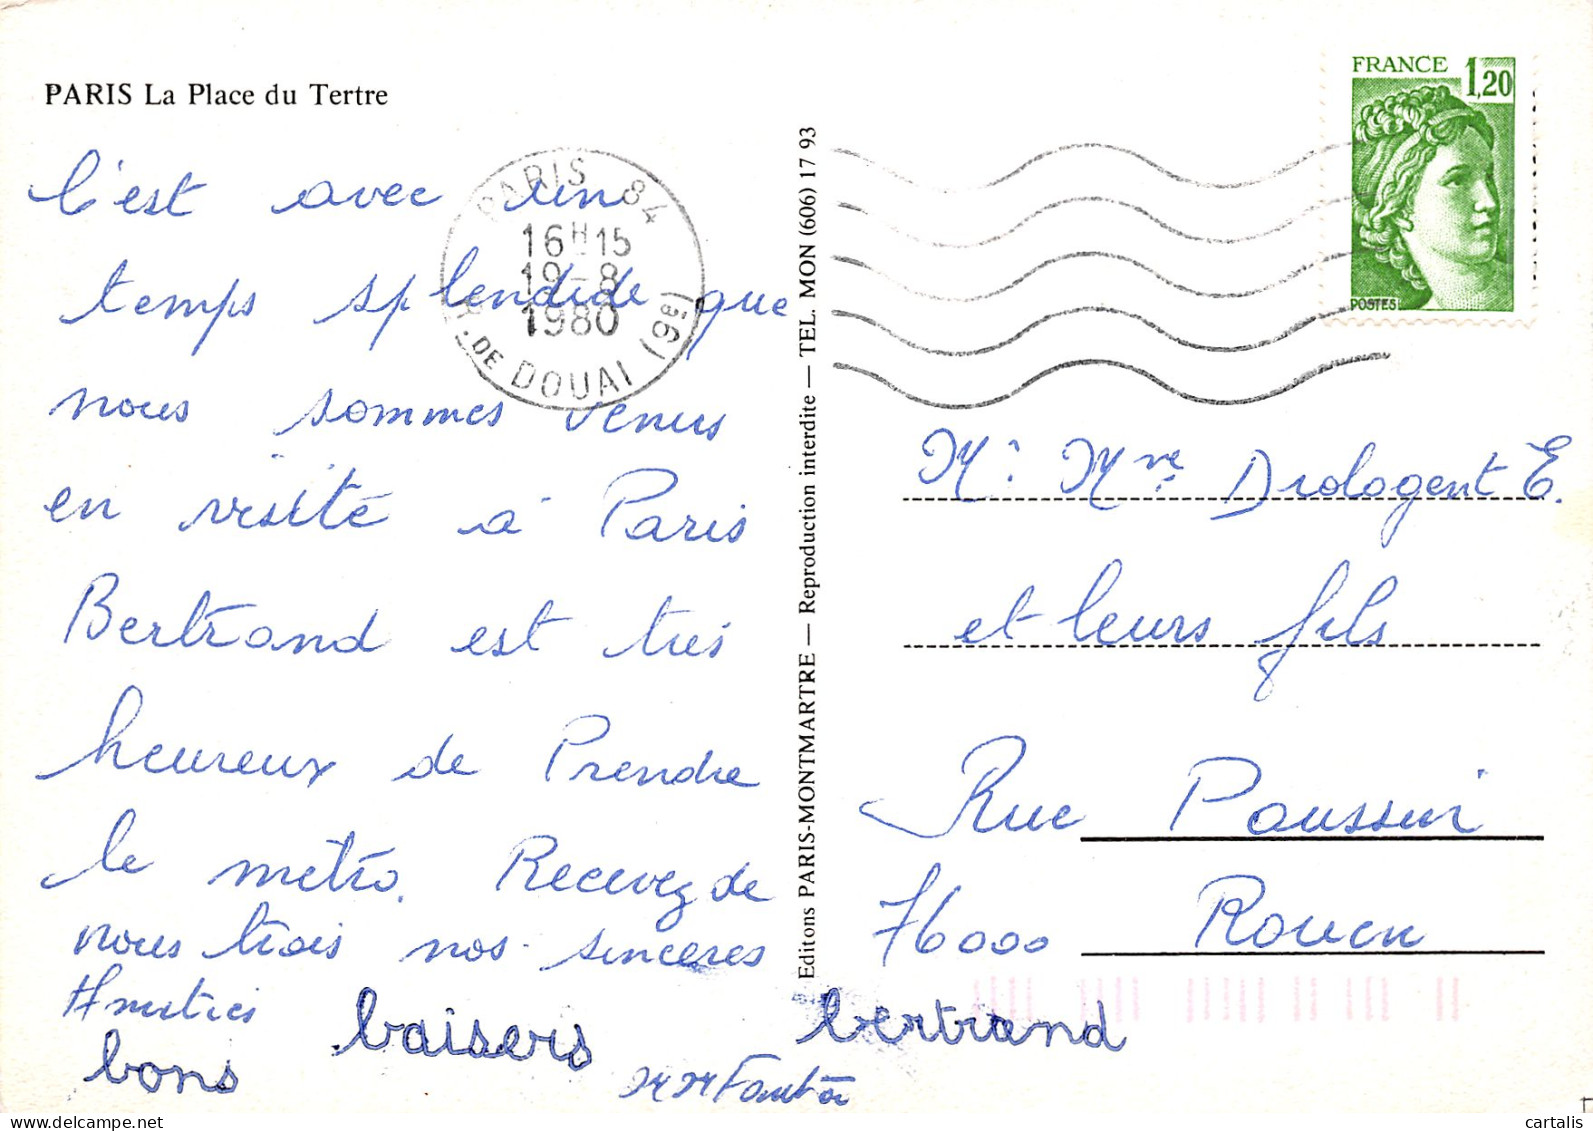 PARIS La Place du Tertre
C'est avec un
temps splendide que
nous sommes venus
en visite à Paris
Bertrand est très
heureux de Prendre
le métro. Recevez de
nous trois nos sinceres
Amitiés
bons baisers bertrand
PARIS 84
16H15
19-8
1980
R. DE DOUAI (9e)
Editons PARIS-MONTMARTRE — Reproduction interdite — TEL. MON (606) 17 93
FRANCE 1,20
POSTES
Mr Mme Drologent E.
et leurs fils
Rue Poussin
76000 Rouen
www.cartalis.com
cartalis